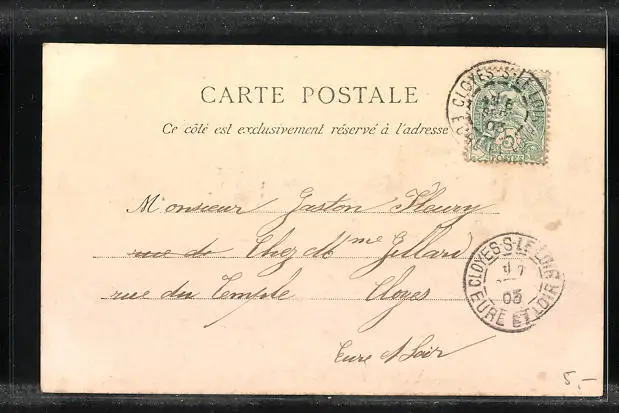 CARTE POSTALE
Ce côté est exclusivement réservé à l'adresse
CLOYES-S-LE-LOIR
03
5
POSTES
Monsieur Gaston Fleury
rue de Chez Mme Gillard
rue du Temple Cloyes
Eure & Loir
CLOYES-S-LE-LOIR
03
EURE ET LOIR
5,-